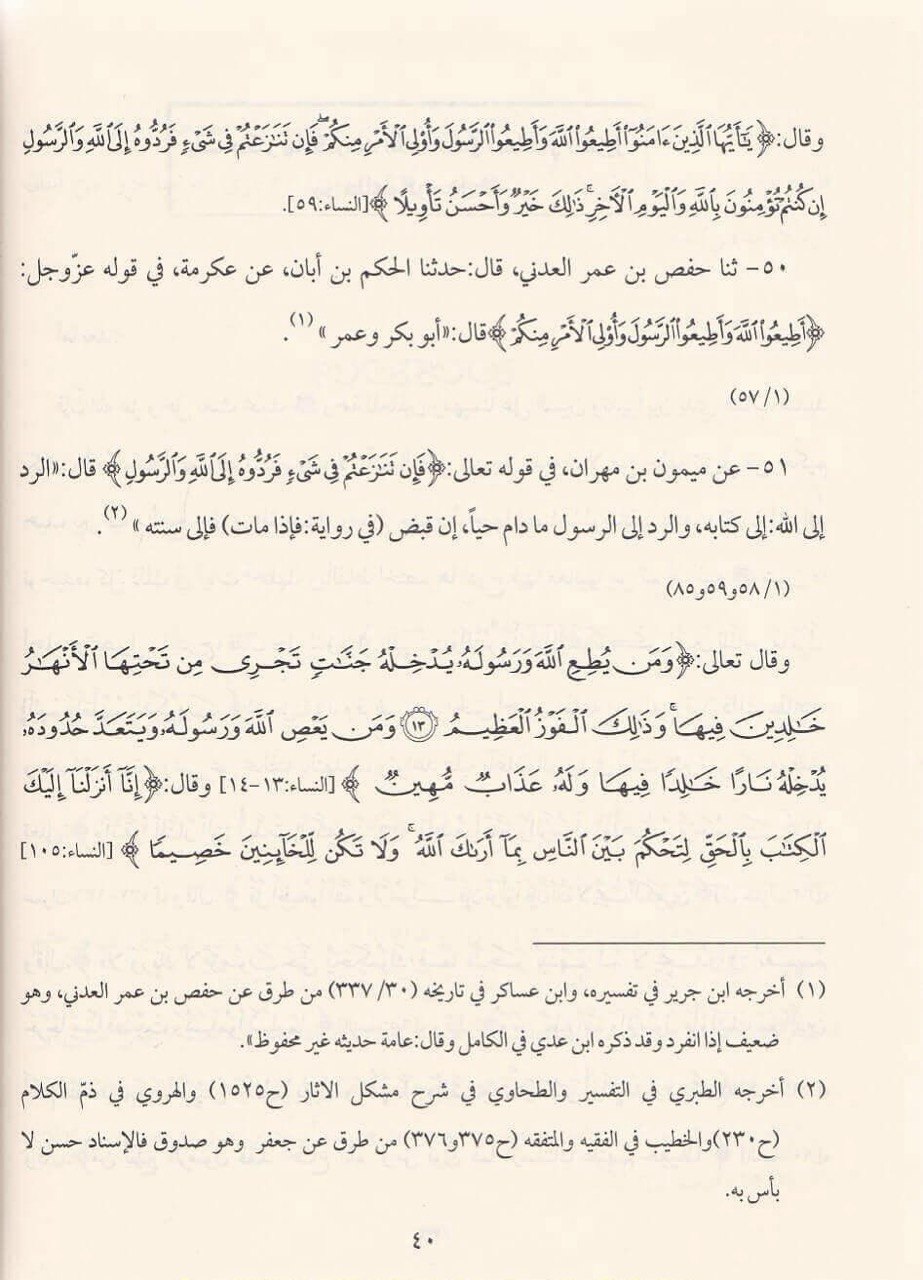 وقال:﴿يَٰٓأَيُّهَا ٱلَّذِينَ ءَامَنُوٓا۟ أَطِيعُوا۟ ٱللَّهَ وَأَطِيعُوا۟ ٱلرَّسُولَ وَأُو۟لِى ٱلْأَمْرِ مِنكُمْ ۖ فَإِن تَنَٰزَعْتُمْ فِى شَىْءٍ فَرُدُّوهُ إِلَى ٱللَّهِ وَٱلرَّسُولِ
إِن كُنتُمْ تُؤْمِنُونَ بِٱللَّهِ وَٱلْيَوْمِ ٱلْءَاخِرِ ۚ ذَٰلِكَ خَيْرٌ وَأَحْسَنُ تَأْوِيلًا﴾[النساء:٥٩].
٥٠- ثنا حفص بن عمر العدني، قال:حدثنا الحكم بن أبان، عن عكرمة، في قوله عزّوجل:
﴿أَطِيعُوا۟ ٱللَّهَ وَأَطِيعُوا۟ ٱلرَّسُولَ وَأُو۟لِى ٱلْأَمْرِ مِنكُمْ﴾قال:«أبو بكر وعمر »(١).
(٥٧/١)
٥١- عن ميمون بن مهران، في قوله تعالى:﴿فَإِن تَنَٰزَعْتُمْ فِى شَىْءٍ فَرُدُّوهُ إِلَى ٱللَّهِ وَٱلرَّسُولِ﴾ قال:«الرد
إلى الله:إلى كتابه، والرد إلى الرسول ما دام حياً، إن قبض (في رواية:فإذا مات) فإلى سنته »(٢).
(٥٨/١و٥٩و٨٥)
وقال تعالى:﴿وَمَن يُطِعِ ٱللَّهَ وَرَسُولَهُۥ يُدْخِلْهُ جَنَّٰتٍ تَجْرِى مِن تَحْتِهَا ٱلْأَنْهَٰرُ
خَٰلِدِينَ فِيهَا ۚ وَذَٰلِكَ ٱلْفَوْزُ ٱلْعَظِيمُ ١٣ وَمَن يَعْصِ ٱللَّهَ وَرَسُولَهُۥ وَيَتَعَدَّ حُدُودَهُۥ
يُدْخِلْهُ نَارًا خَٰلِدًا فِيهَا وَلَهُۥ عَذَابٌ مُّهِينٌ﴾ [النساء:١٣-١٤] وقال:﴿إِنَّآ أَنزَلْنَآ إِلَيْكَ
ٱلْكِتَٰبَ بِٱلْحَقِّ لِتَحْكُمَ بَيْنَ ٱلنَّاسِ بِمَآ أَرَىٰكَ ٱللَّهُ ۚ وَلَا تَكُن لِّلْخَآئِنِينَ خَصِيمًا﴾ [النساء:١٠٥]
(١) أخرجه ابن جرير في تفسيره، وابن عساكر في تاريخه (٣٠/ ٣٣٧) من طرق عن حفص بن عمر العدني، وهو
ضعيف إذا انفرد وقد ذكره ابن عدي في الكامل وقال:عامة حديثه غير محفوظ».
(٢) أخرجه الطبري في التفسير والطحاوي في شرح مشكل الاثار (ح١٥٢٥) والهروي في ذمّ الكلام
(ح٢٣٠)والخطيب في الفقيه والمتفقه (ح٣٧٥و٣٧٦) من طرق عن جعفر وهو صدوق فالإسناد حسن لا
بأس به.
٤٠